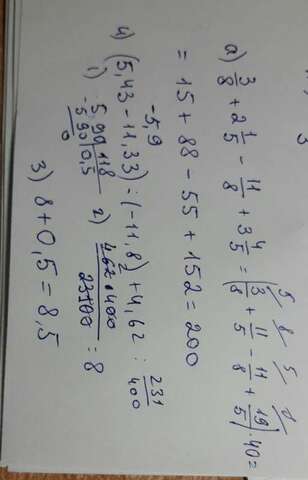 а) 3/8 + 2 1/5 - 11/8 + 3 4/5 = (3/8 + 11/5 - 11/8 + 19/5) · 40 =
= 15 + 88 - 55 + 152 = 200
-5,9
и) (5,43 - 11,33) : (-11,8) + 4,62 : 231/400
1) 5,90 | 118
- 5 90 | 0,5
0
2) 4,62 · 400 / 23100 = 8
3) 8 + 0,5 = 8,5